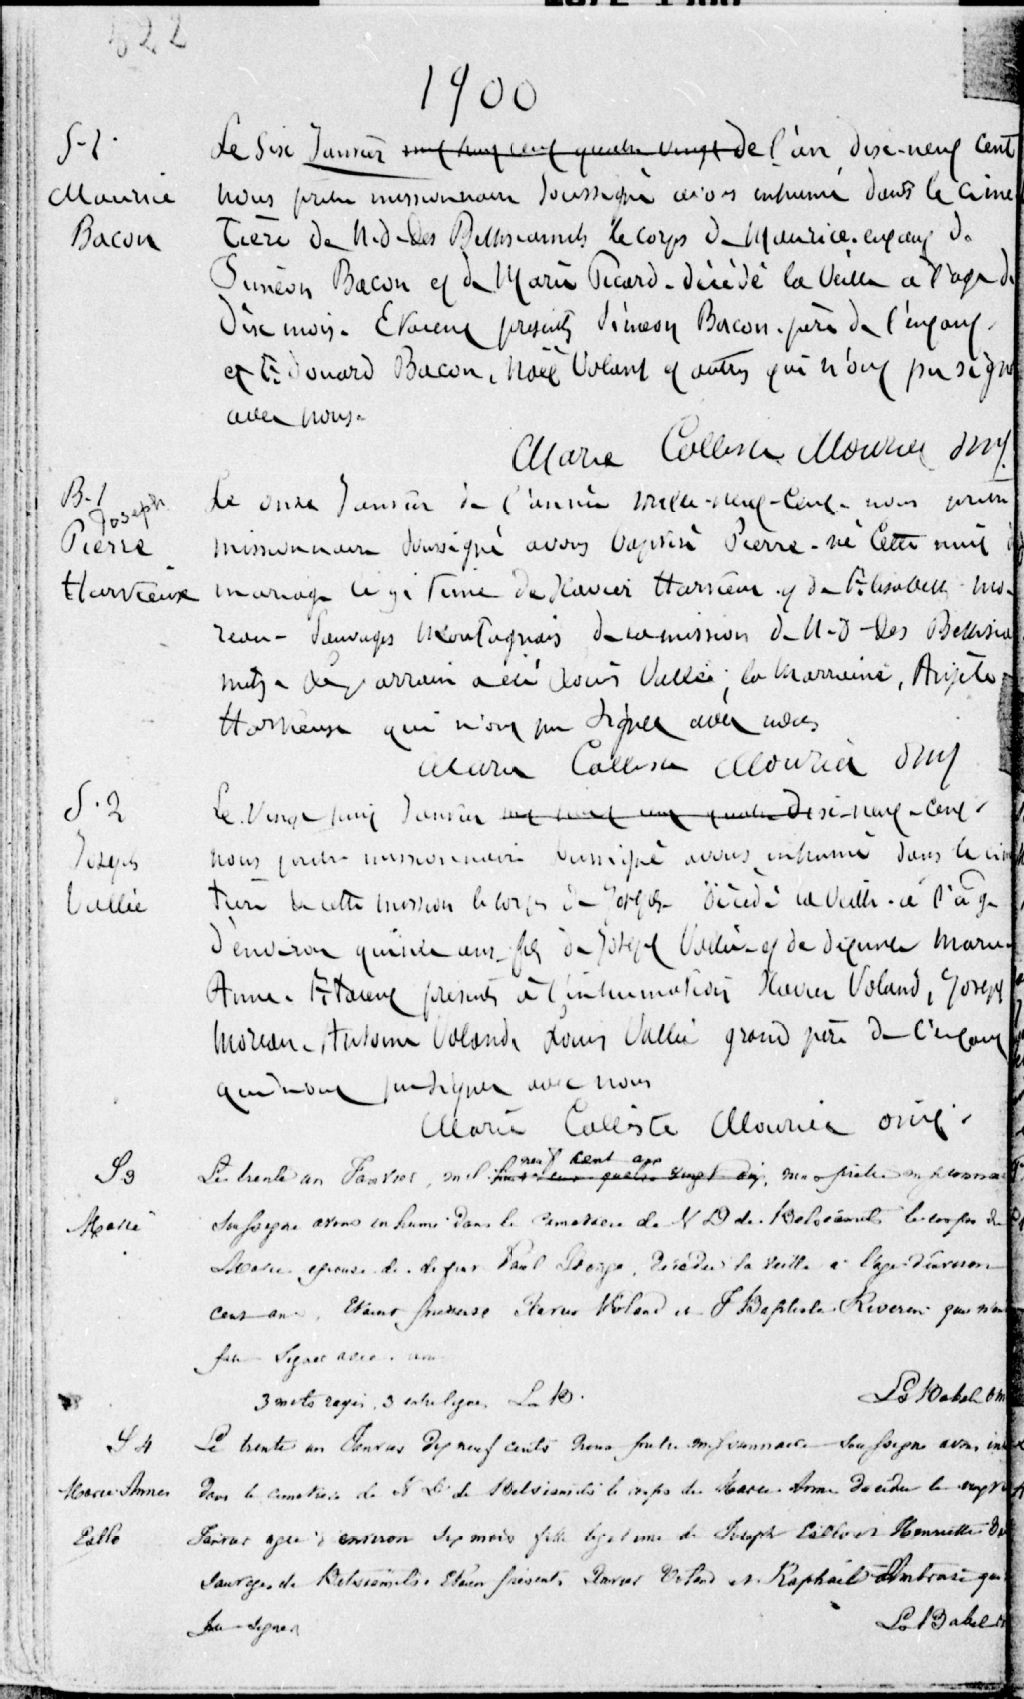 522
1900
S-1.
Maurice
Bacon
Le Six Janvier mil huit cent quatre vingt de l'an dix-neuf cent
nous prêtre missionnaire soussigné avons inhumé dans le cime
tière de N-D-des Bethsiamits le corps de Maurice enfant de
Siméon Bacon et de Marie Picard. décédé la veille a l'age de
dix mois. Etaient présents Siméon Bacon. père de l'enfant.
et Edouard Bacon, Noël Voland et autres qui n'ont pu signer
avec nous.
Marie Calliste Mourier omi.
B-1
Joseph
Pierre
Harvieux
Le onze Janvier de l'année mille-neuf-cent. nous prêtre
missionnaire soussigné avons baptisé Pierre. né cette nuit du
mariage légitime de Xavier Harvieux et de Elisabeth Mo-
reau - Sauvages Montagnais de la mission de N-D-des Bethsia
mits. Le parrain a été Louis Vallée; la Marraine,
Harvieux qui n'ont pu signer avec nous
Marie Calliste Mourier omi
S. 2
Joseph
Vallée
Le Vingt Janvier mil huit cent quatre dix-neuf-cent.
nous prêtre missionnaire soussigné avons inhumé dans le cime
tière de cette mission le corps de Joseph décédé la veille. à l'âge
d'environ quinze ans. fils de Joseph Vallée et de défunte Marie
Anne. Etaient présents à l'inhumation Xavier Voland, Joseph
Moreau, Antoine Voland, Louis Vallée grand père de l'enfant
qui n'ont pu signer avec nous
Marie Calliste Mourier omi.
S 3
Marie
neuf cent
Le trente un Janvier, mil huit cent quatre vingt dix, nous prêtre missionnaire
soussigné avons inhumé dans le cimetière de N D de Betsiamits le corps de
Marie épouse de défunt Paul décédée la veille a l'age d'environ
cent ans. Etaient présents Xavier Voland et J Baptiste Riverin qui n'ont
pu signer avec nous
3 mots rayés, 3 entrelignes. L. B.
Ls Babel omi
S 4
Marie Anne
Le trente un Janvier dix neuf cents Nous prêtre missionnaire soussigné avons inhumé
dans le cimetière de N D de Betsiamits le corps de Marie Anne décédée le vingt
Janvier agée d'environ six mois fille légitime de Joseph et Henriette
sauvages de Betsiamits. Etaient présents Xavier Voland et Raphaël Ambroise qui
pu signer
Ls Babel